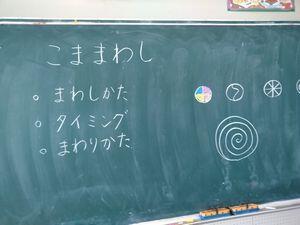 こままわし
○ まわしかた
○ タイミング
○ まわりかた